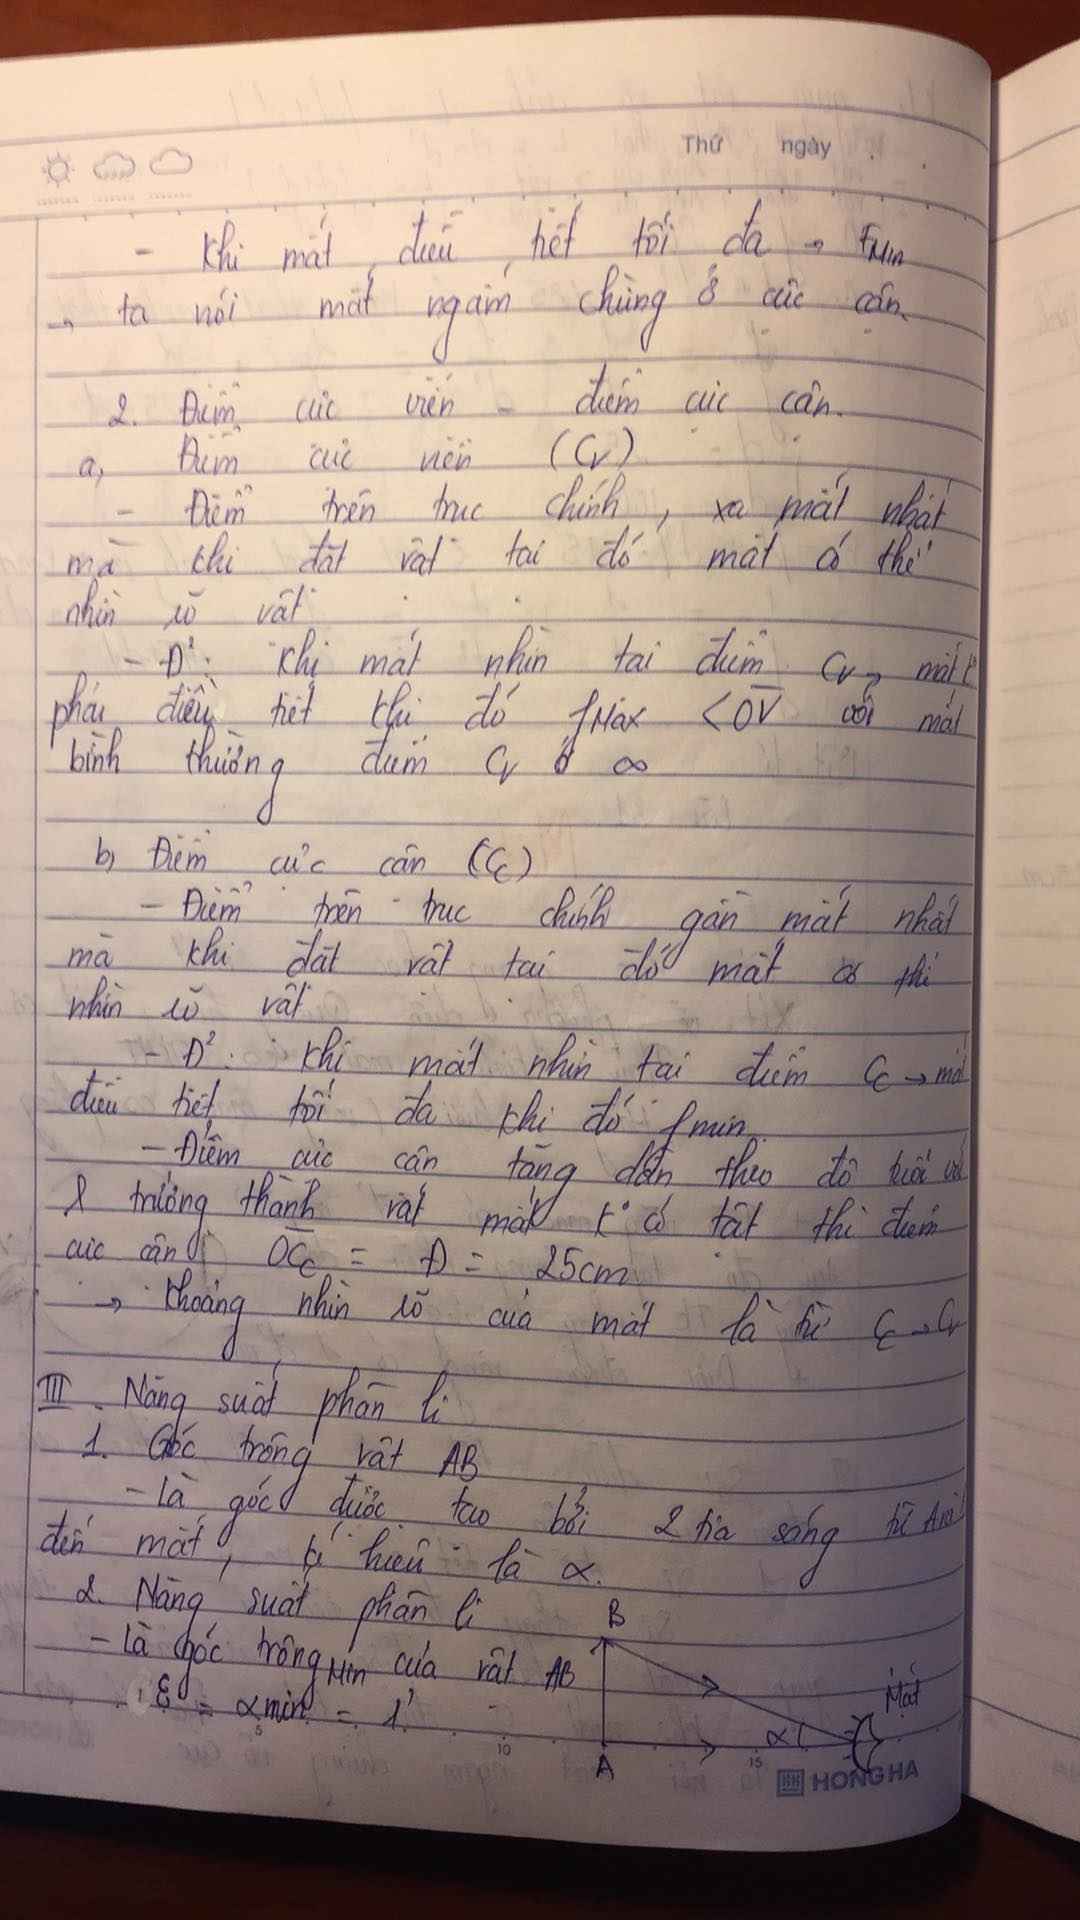 Thứ ngày
- Khi mắt điều tiết tối đa → fMin
→ ta nói mắt ngắm chừng ở cực cận.
2. Điểm cực viễn - điểm cực cận.
a, Điểm cực viễn (Cv)
- Điểm trên trục chính, xa mắt nhất
mà khi đặt vật tại đó mắt có thể
nhìn rõ vật
- Đ²: Khi mắt nhìn tại điểm Cv → mắt k°
phải điều tiết khi đó fMax < OV với mắt
bình thường điểm Cv ở ∞
b, Điểm cực cận (Cc)
- Điểm trên trục chính gần mắt nhất
mà khi đặt vật tại đó mắt có thể
nhìn rõ vật
- Đ²: Khi mắt nhìn tại điểm Cc → mắt
điều tiết tối đa khi đó fmin.
- Điểm cực cận tăng dần theo độ tuổi với
trưởng thành mắt k° có tật thì điểm
cực cận OCc = Đ = 25cm
→ Khoảng nhìn rõ của mắt là từ Cc → Cv
III. Năng suất phân li
1. Góc trông vật AB
- Là góc được tạo bởi 2 tia sáng từ A và
đến mắt, kí hiệu là α.
2. Năng suất phân li
- Là góc trông Min của vật AB
ε = αmin = 1'
B
A
α
Mắt
5 10 15
HONG HA